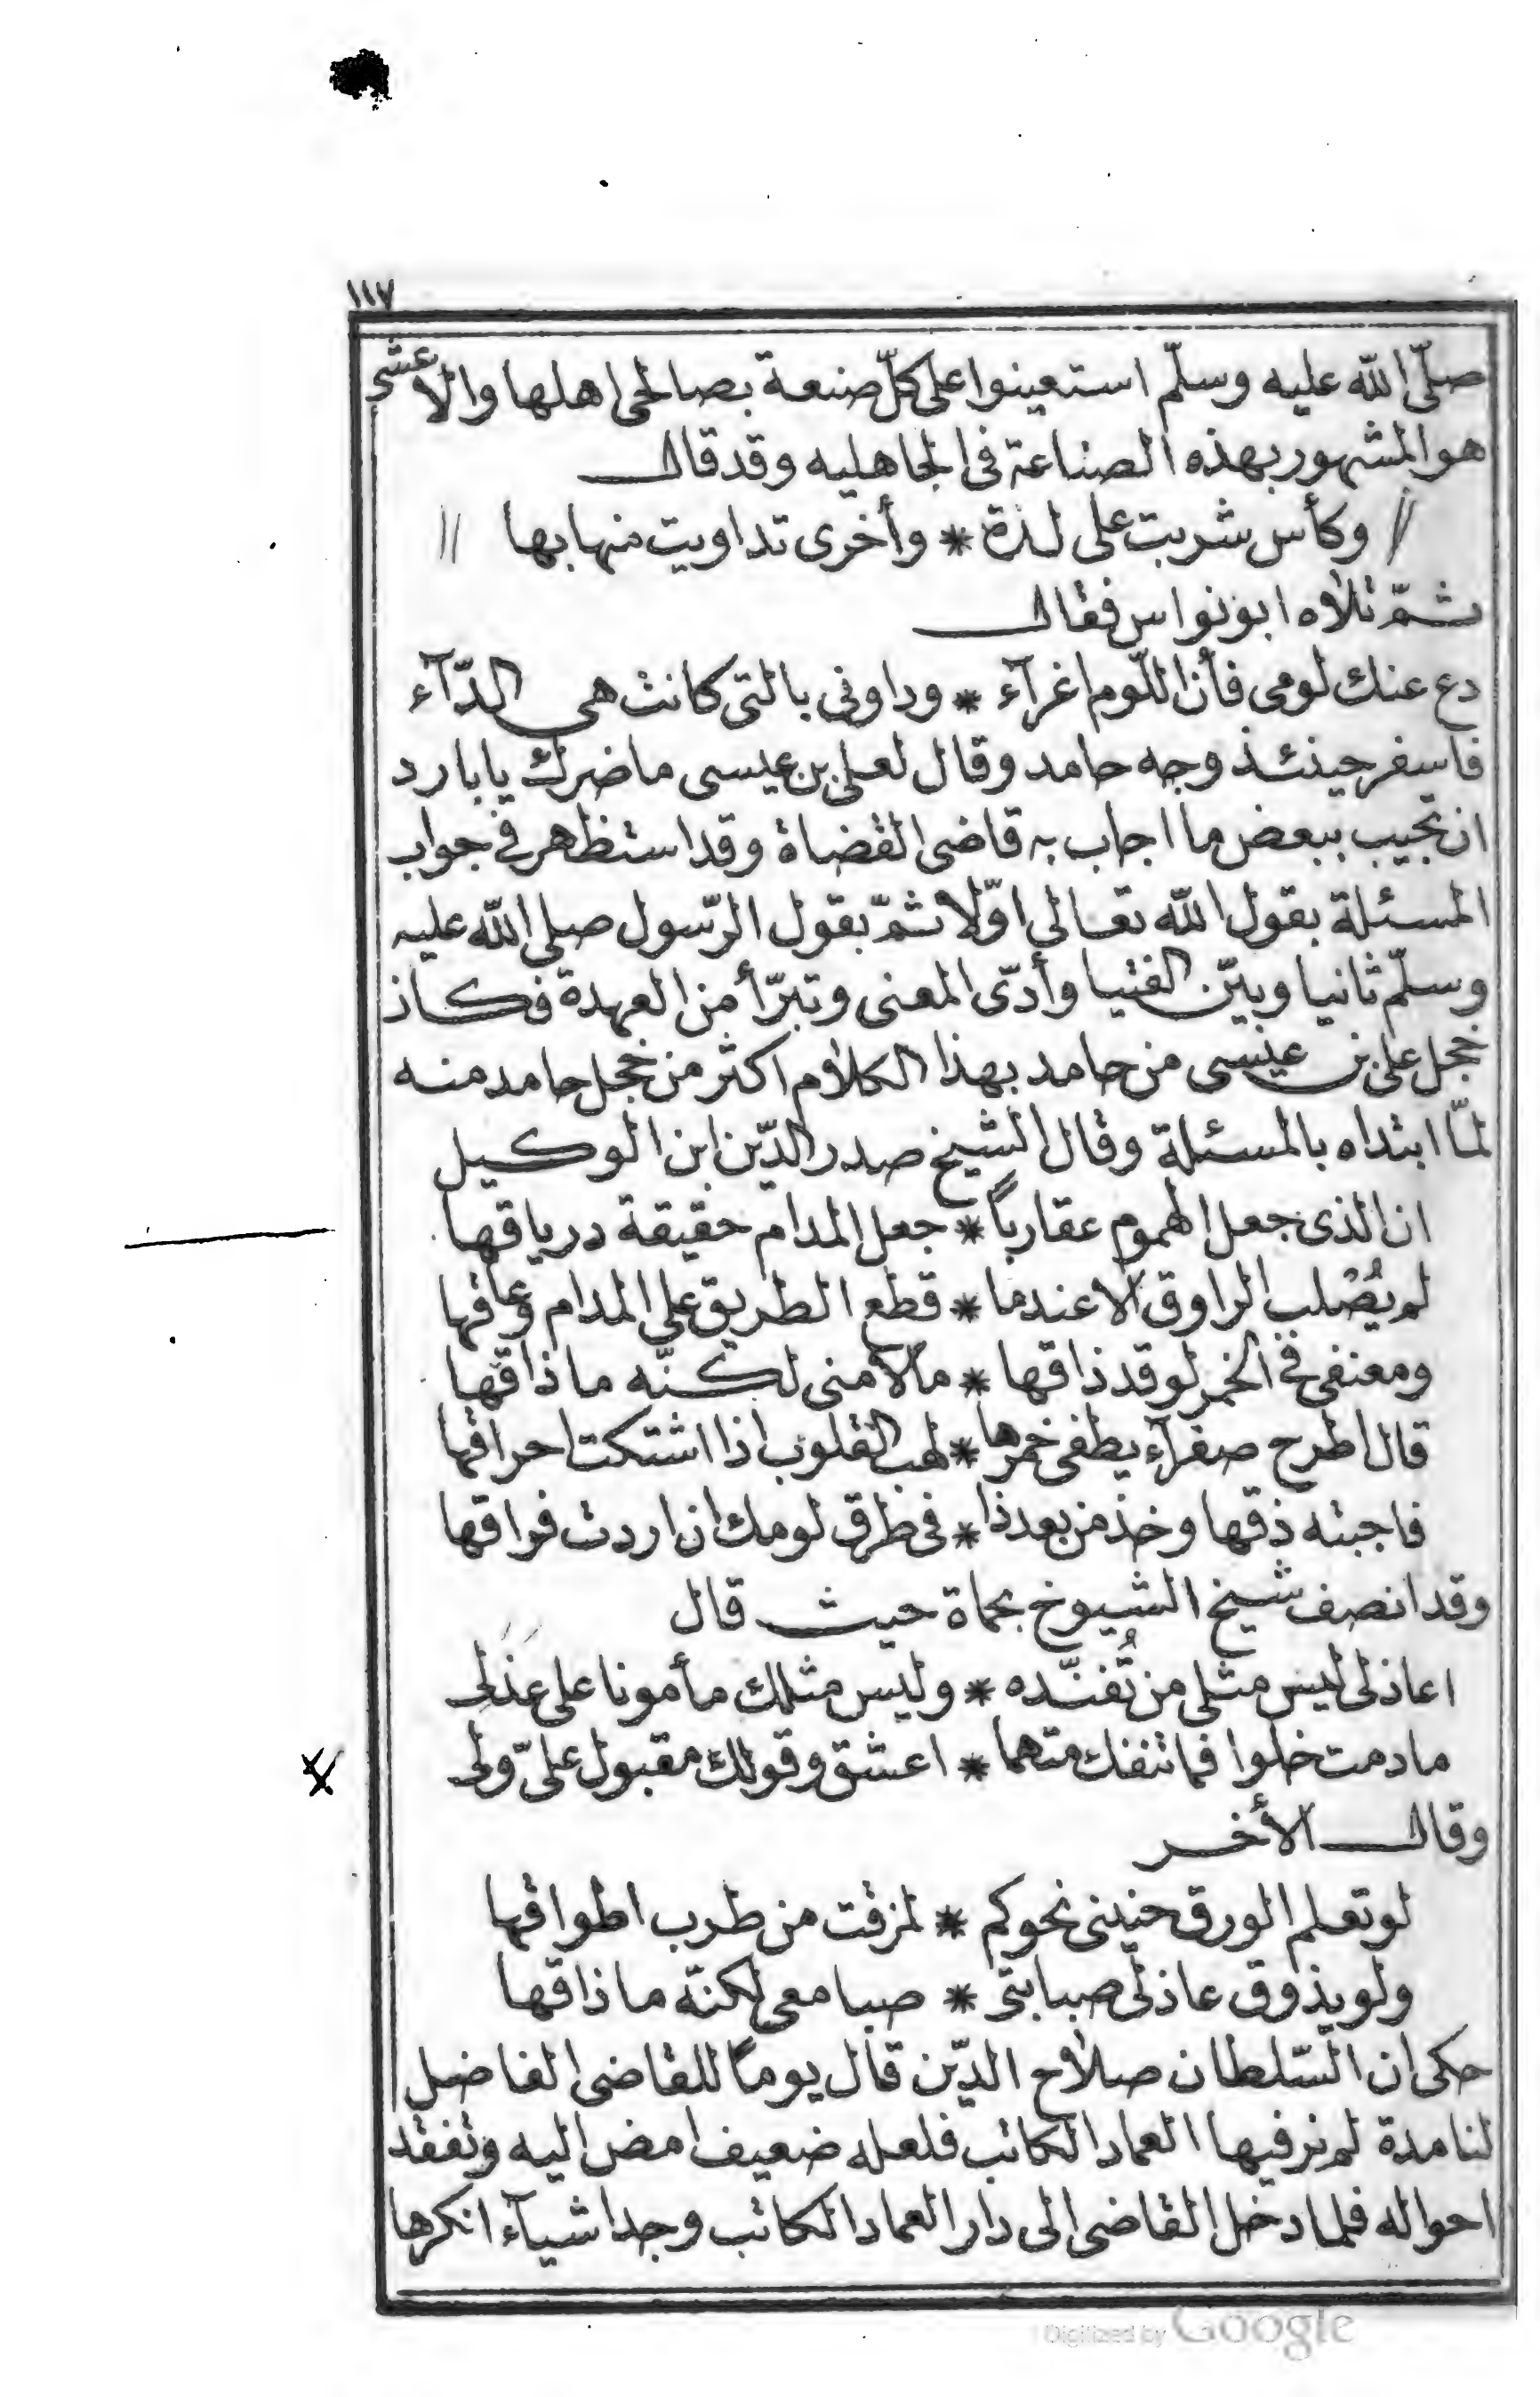 ١١٧
صلّى الله عليه وسلّم استعينوا على كلّ صنعة بصالحى اهلها والاعشى
هو المشهور بهذه الصناعة فى الجاهليه وقد قال
وكأس شربت على لذة * وأخرى تداويت منها بها
ثمّ تلاه ابو نواس فقال
دع عنك لومى فأن اللّوم اغرآء * وداونى بالتى كانت هى الدّآء
فاسفر حينئذ وجه حامد وقال لعلى بن عيسى ما ضرك يا بارد
ان تجيب ببعض ما اجاب به قاضى القضاة وقد استظهر فى جواب
المسئلة بقول الله تعالى اوّلا ثمّ بقول الرّسول صلى الله عليه
وسلّم ثانيا وبيّن الفتيا وأدّى المعنى وتبرّأ من العهدة فكان
خجل على بن عيسى من حامد بهذا الكلام اكثر من خجل حامد منه
لمّا ابتداه بالمسئلة وقال الشيخ صدر الدّين ابن الوكيل
ان الذى جعل الهموم عقارباً * جعل المدام حقيقة درياقها
لم يُصْلب الراوق الا عندما * قطع الطريق على المدام وعاقها
ومعنفى فى الخمر لو قد ذاقها * ما لامنى لكنّه ما ذاقها
قال اطرح صفرآء يطفى خمرها * لهب القلوب اذا اشتكت احراقها
فاجبته ذقها وخذ من بعد ذا * فى طرق لومك ان اردت فراقها
وقد انصف شيخ الشيوخ بحماة حيث قال
اعاذلى ليس مثلى من تُفنّده * وليس مثلك مأمونا على عذلى
ما دمت خلوا فما تنفك متهما * اعشق وقولك مقبول علىّ ولى
وقال الأخر
لو تعلم الورق حنينى نحوكم * لمزقت من طرب اطواقها
ولو يذوق عاذلى صبابتى * صبا معى لكنّه ما ذاقها
حكى ان السّلطان صلاح الدّين قال يوماً للقاضى الفاضل
لنا مدة لم نر فيها العماد الكاتب فلعله ضعيف امض اليه وتفقد
احواله فلما دخل القاضى الى دار العماد الكاتب وجد اشيآء انكرها
Digitized by Google